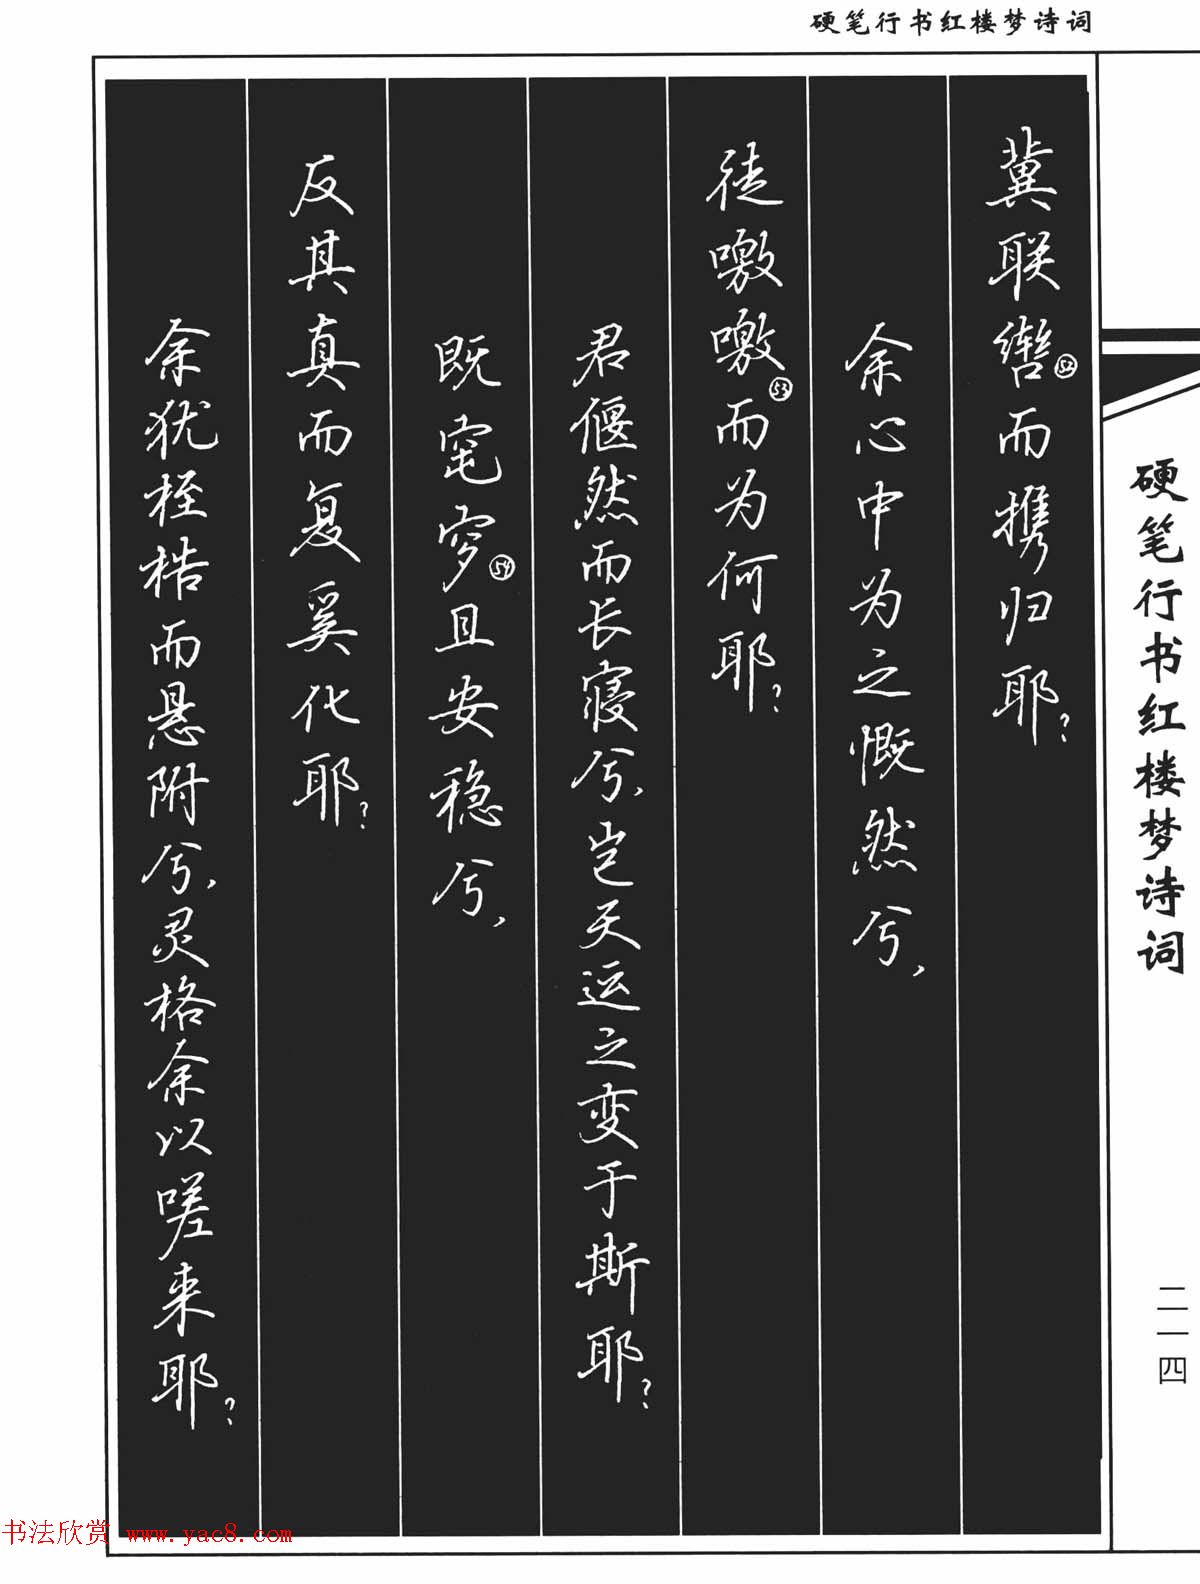 硬笔行书红楼梦诗词
冀联辔㊾而携归耶？
余心中为之慨然兮，
徒噭噭而为何耶？
君偃然而长寝兮，岂天运之变于斯耶？
既窀穸且安稳兮，
反其真而复奚化耶？
余犹桎梏而悬附兮，灵格余以嗟来耶？
硬笔行书红楼梦诗词
二一四
书法欣赏 www.yac8.com